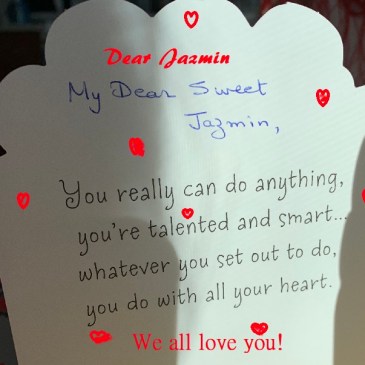 Dear Jazmin
My Dear Sweet
Jazmin,
You really can do anything,
you're talented and smart...
whatever you set out to do,
you do with all your heart.
We all love you!